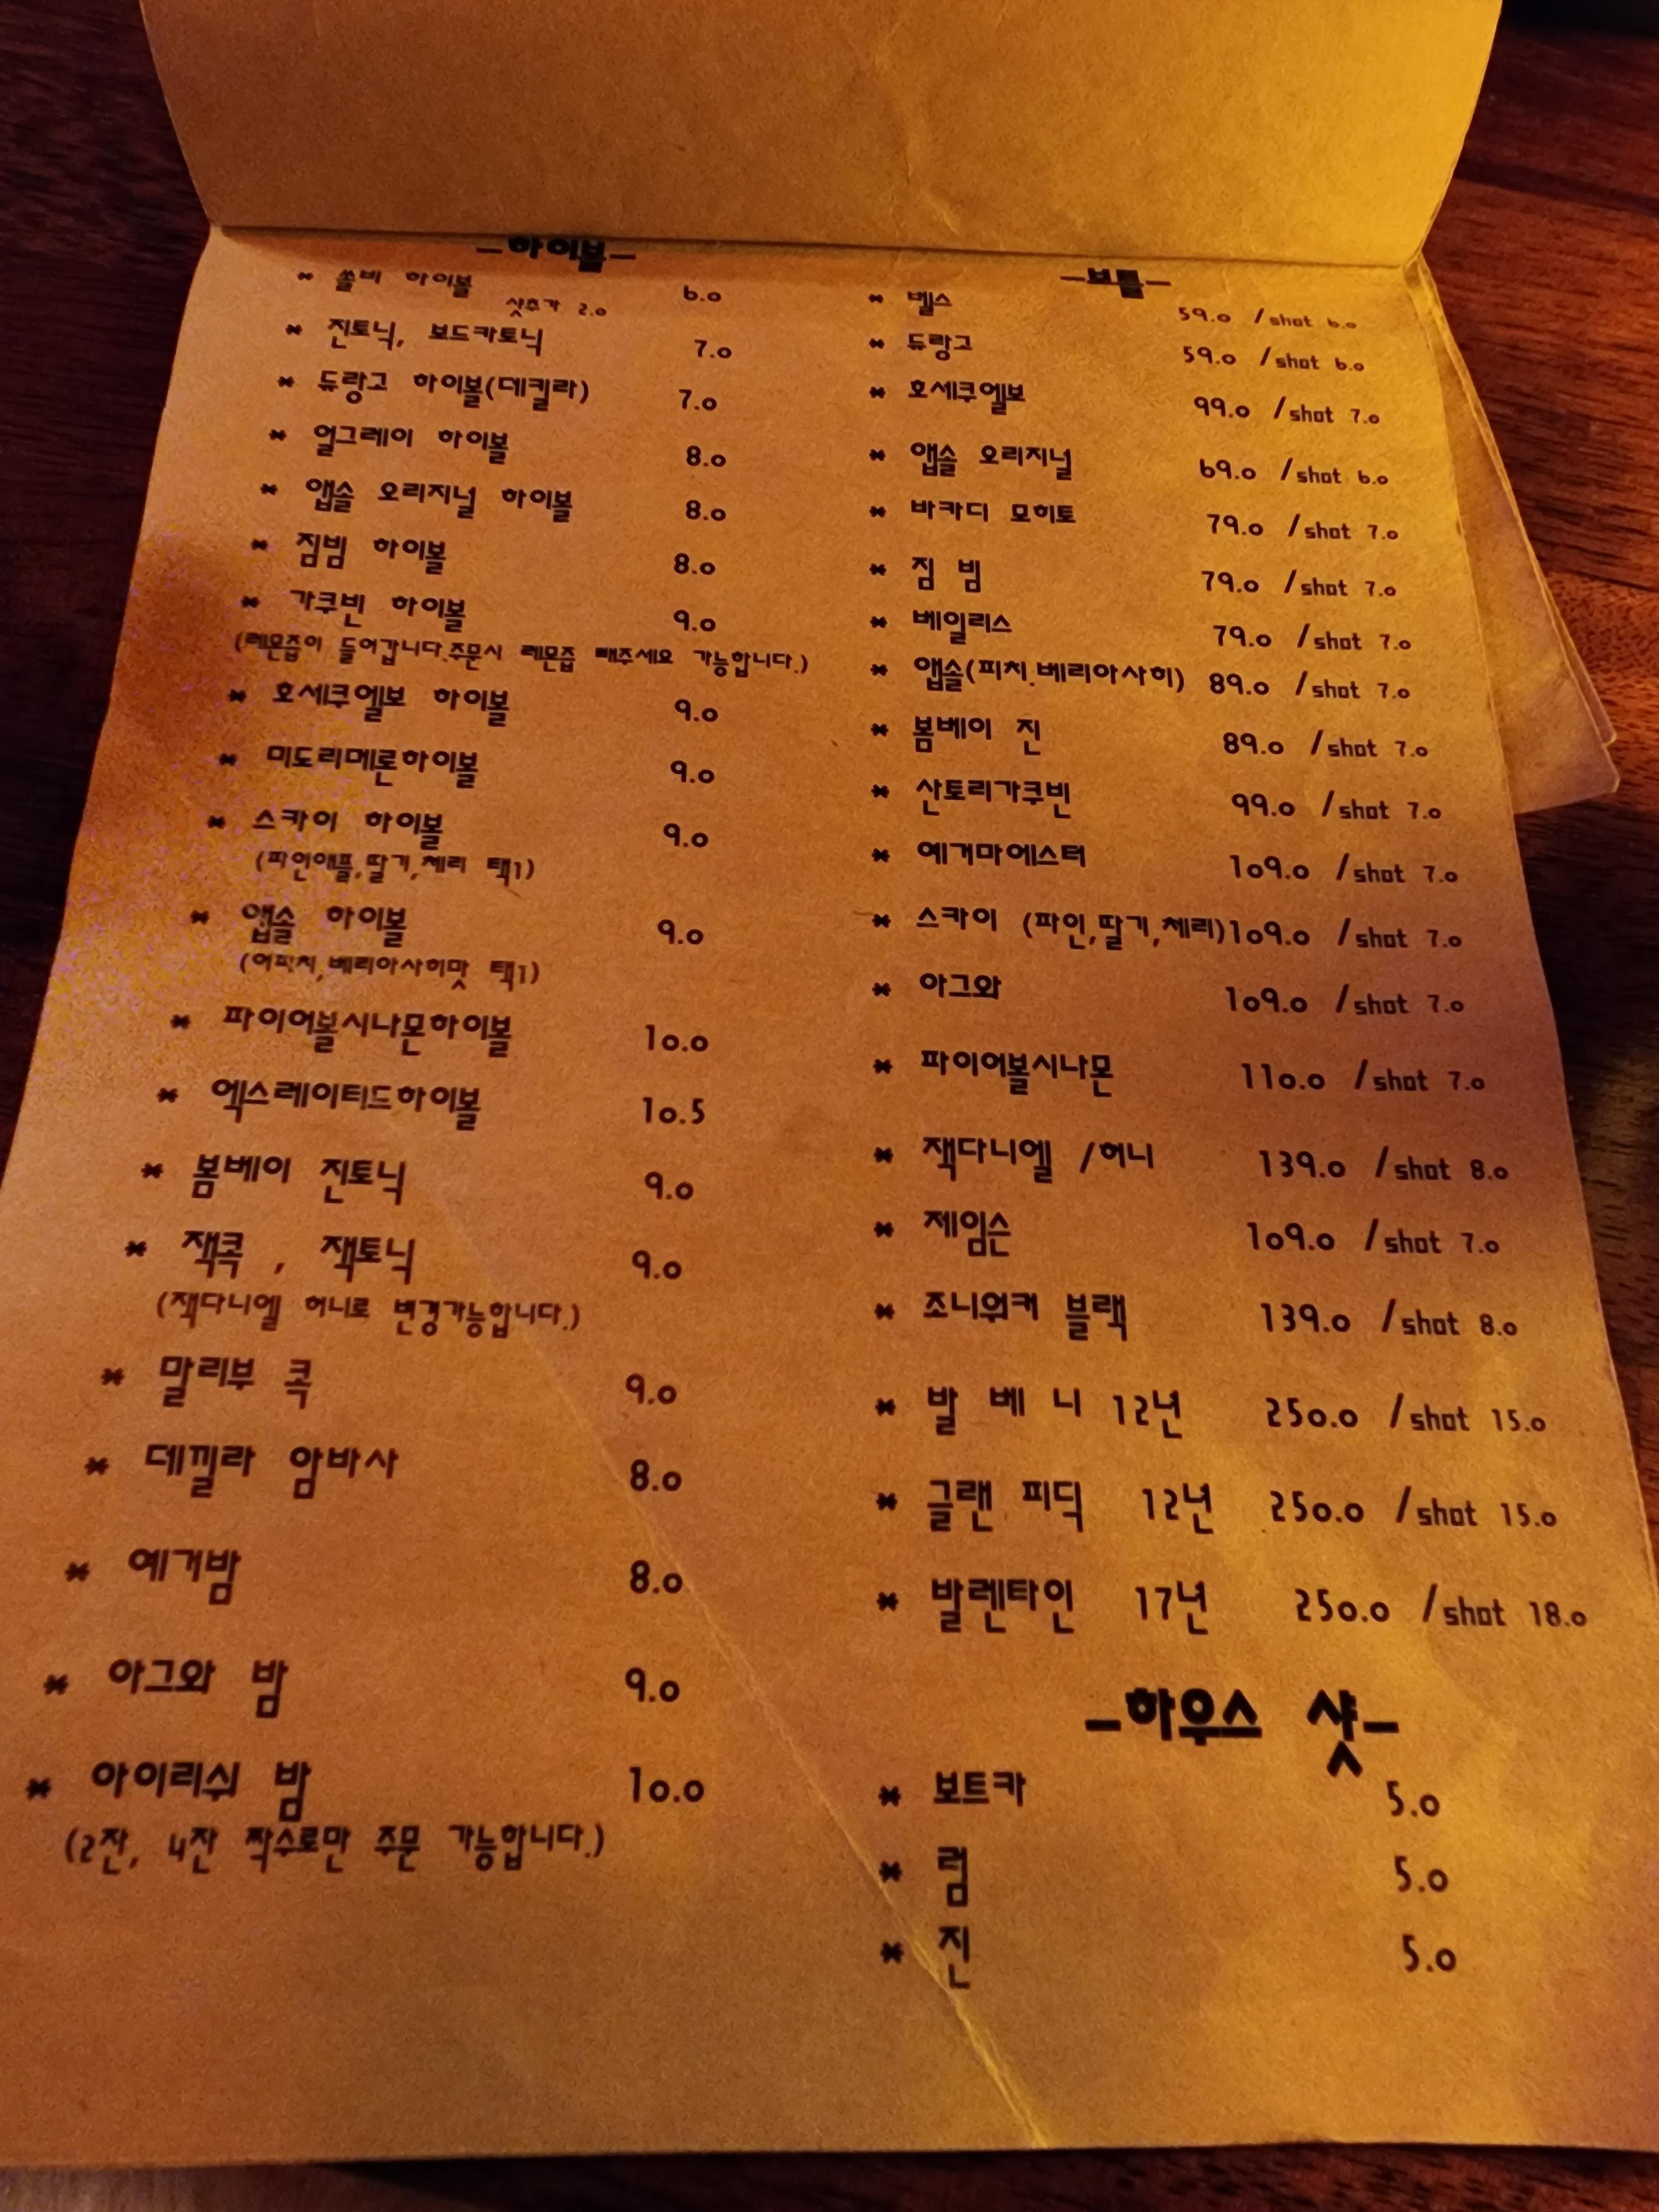 -하이볼-
* 쏠비 하이볼 6.0
샷추가 2.0
* 진토닉, 보드카토닉 7.0
* 듀랑고 하이볼(데킬라) 7.0
* 얼그레이 하이볼 8.0
* 앱솔 오리지널 하이볼 8.0
* 짐빔 하이볼 8.0
* 가쿠빈 하이볼 9.0
(레몬즙이 들어갑니다.주문시 레몬즙 빼주세요 가능합니다.)
* 호세쿠엘보 하이볼 9.0
* 미도리메론하이볼 9.0
* 스카이 하이볼 9.0
(파인애플,딸기,체리 택1)
* 앱솔 하이볼 9.0
(어피치,베리아사히맛 택1)
* 파이어볼시나몬하이볼 10.0
* 엑스레이티드하이볼 10.5
* 봄베이 진토닉 9.0
* 잭콕 , 잭토닉 9.0
(잭다니엘 허니로 변경가능합니다.)
* 말리부 콕 9.0
* 데낄라 암바사 8.0
* 예거밤 8.0
* 아그와 밤 9.0
* 아이리쉬 밤 10.0
(2잔, 4잔 짝수로만 주문 가능합니다.)
-보틀-
* 벨스 59.0 /shot 6.0
* 듀랑고 59.0 /shot 6.0
* 호세쿠엘보 99.0 /shot 7.0
* 앱솔 오리지널 69.0 /shot 6.0
* 바카디 모히토 79.0 /shot 7.0
* 짐 빔 79.0 /shot 7.0
* 베일리스 79.0 /shot 7.0
* 앱솔(피치.베리아사히) 89.0 /shot 7.0
* 봄베이 진 89.0 /shot 7.0
* 산토리가쿠빈 99.0 /shot 7.0
* 예거마에스터 109.0 /shot 7.0
* 스카이 (파인,딸기,체리)109.0 /shot 7.0
* 아그와 109.0 /shot 7.0
* 파이어볼시나몬 110.0 /shot 7.0
* 잭다니엘 /허니 139.0 /shot 8.0
* 제임슨 109.0 /shot 7.0
* 조니워커 블랙 139.0 /shot 8.0
* 발 베 니 12년 250.0 /shot 15.0
* 글랜 피딕 12년 250.0 /shot 15.0
* 발렌타인 17년 250.0 /shot 18.0
-하우스 샷-
* 보트카 5.0
* 럼 5.0
* 진 5.0